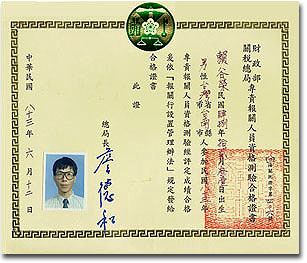 財政部
關稅總局專責報關人員資格測驗合格證書
賴 榮 民國 年 月 日出生
性 市 縣人參加民國八十三年
專責報關人員資格測驗經評定成績合格
爰依「報關行設置管理辦法」規定發給
合格證書
此證
總局長 詹德和
中華民國 八十三 年 六 月 十 日